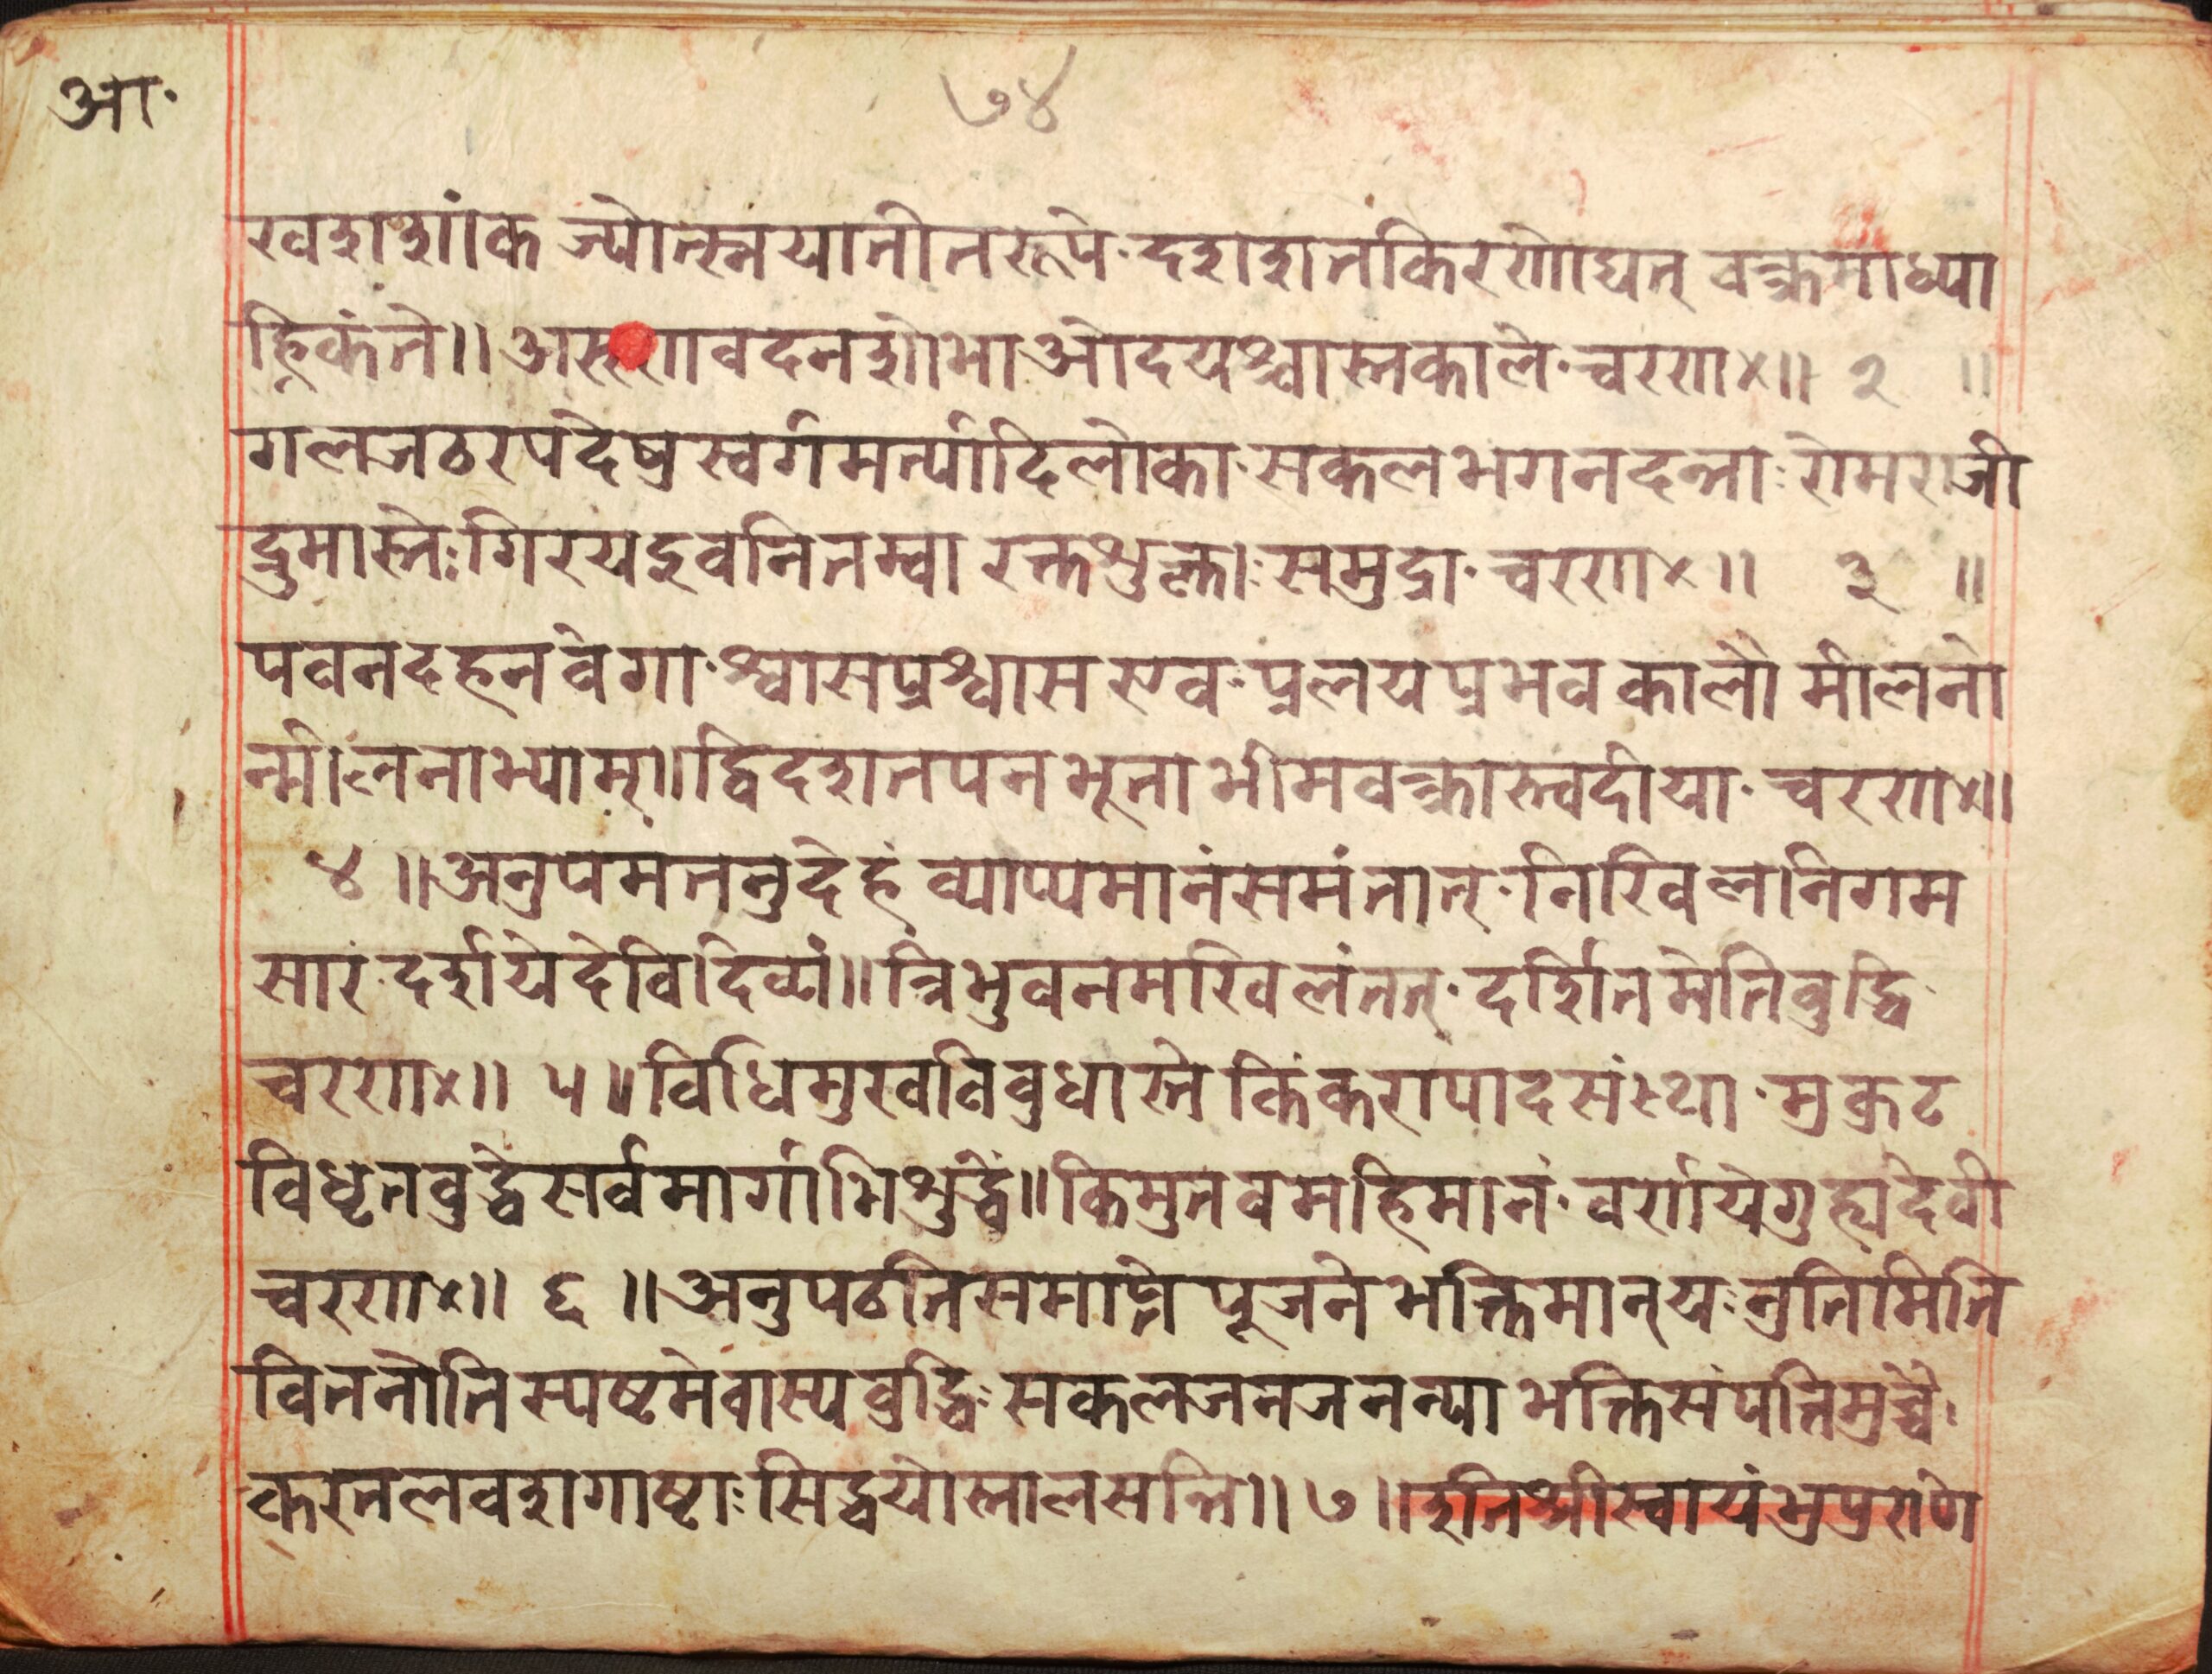 आ॰
७४
खशशांक ज्योत्स्नयातीतरूपे॰दशशतकिरणोद्यत् वक्त्रमाध्या
ह्निकंते॥अरुणावदनशोभा ओदयश्चास्तकाले॰चरण४॥ २ ॥
गलजठरपदेषु स्वर्गमर्त्यादिलोका॰सकलभगनदन्ता॰रोमराजी
द्रुमास्ते॰गिरयइवनितम्बा रक्तशुक्ता॰समुद्रा॰चरण४॥ ३ ॥
पवनदहनवेगा॰श्वासप्रश्वास एव॰प्रलयप्रभवकालौ मीलनो
न्मीलनाभ्याम्॥द्विदशतपनभूताभीमवक्त्रास्त्वदीया॰चरण४॥
४ ॥अनुपमतनुदेहं व्याप्यमानंसमंतात्॰निखिलनिगम
सारं॰दर्शयेदेविदिव्यं॥त्रिभुवनमखिलंतत्॰दर्शितमेतिबुद्धि॰
चरण४॥ ५॥विधिमुखविबुधास्ते किंकरापादसंस्था॰मुकुट
विधृतबुद्धेसर्वमार्गाभिशुद्धे॥किमुतवमहिमानं॰वर्णयेगुह्यदेवी
चरण४॥ ६ ॥अनुपठतिसमाप्ते पूजने भक्तिमान्य॰नुतिमिति
वितनोति स्पष्टमेवास्य बुद्धि॰सकलजनजनन्या भक्तिसंपत्तिमुच्चै।
करतलवशगाष्टा॰सिद्धयोस्तालसन्ति॥७॥इतिश्रीस्वायंभुपुराणे